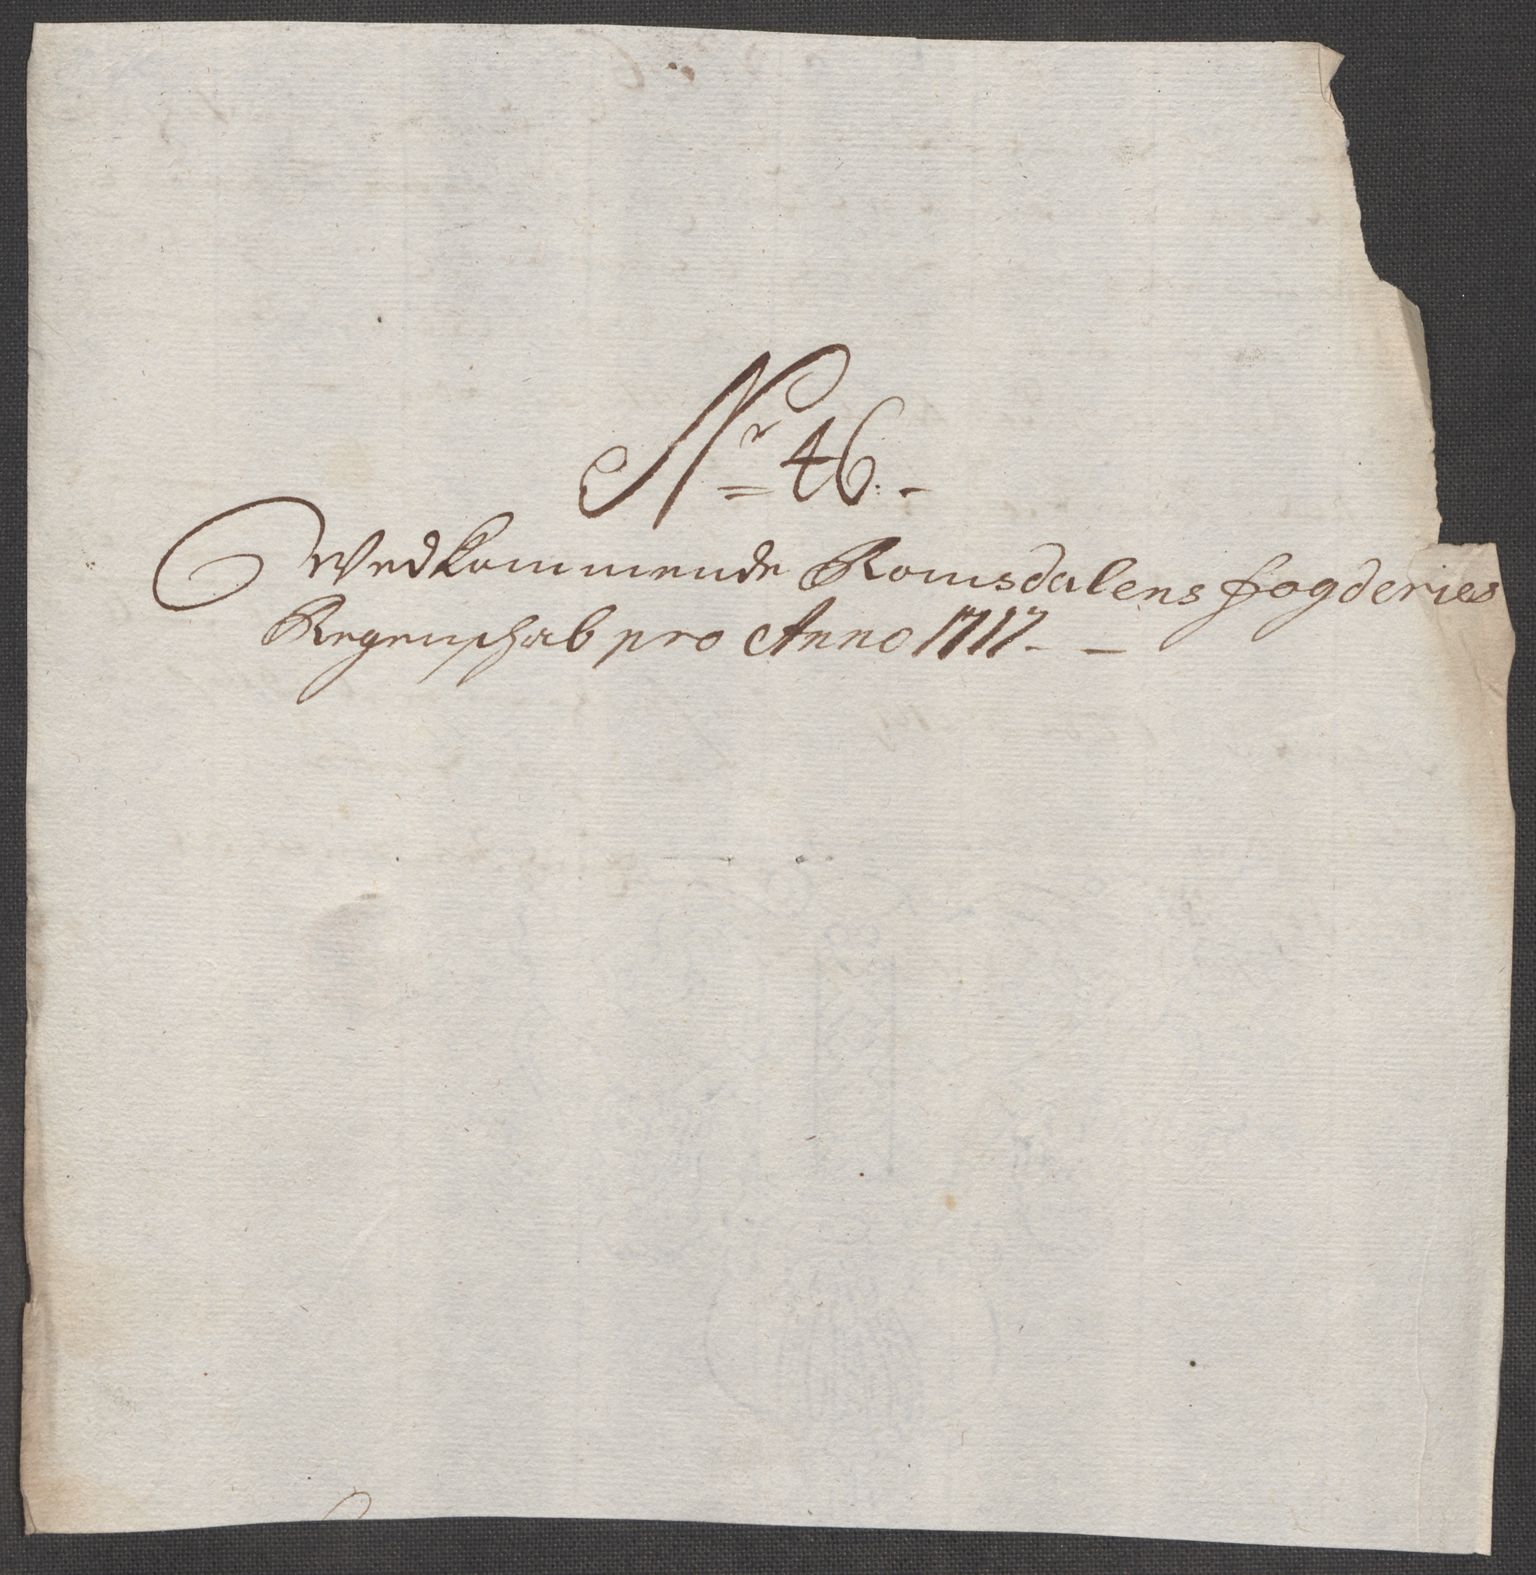 Nr 46.-
Wedkommende Romsdalens fogderies
Regenschab pro Anno 1717. -